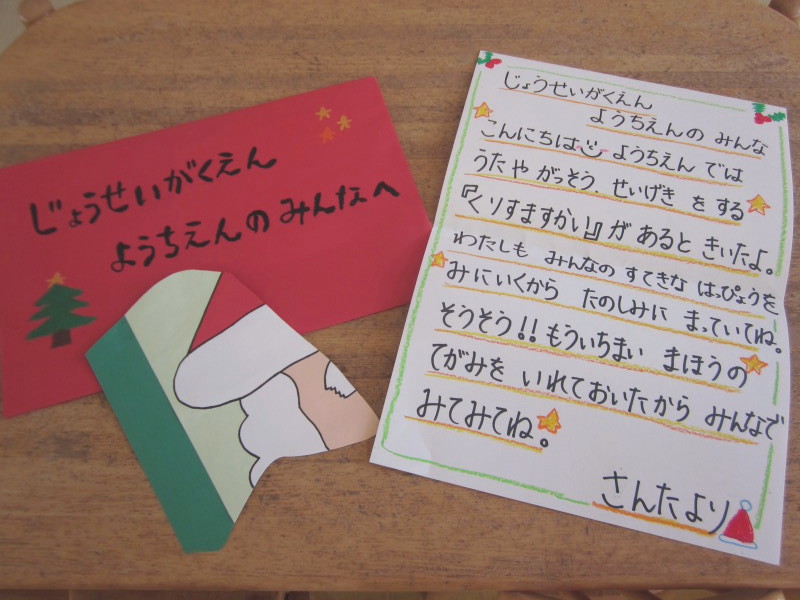 じょうせいがくえん
ようちえんのみんなへ
じょうせいがくえん
ようちえんの みんな
こんにちは ようちえん では
うた や がっそう. せいげき を する
『くりすますかい』が あると きいたよ。
わたしも みんなの すてきな はっぴょうを
みにいくから たのしみに まっていてね。
そうそう!! もういちまい まほうの
てがみを いれておいたから みんなで
みてみてね。
さんたより